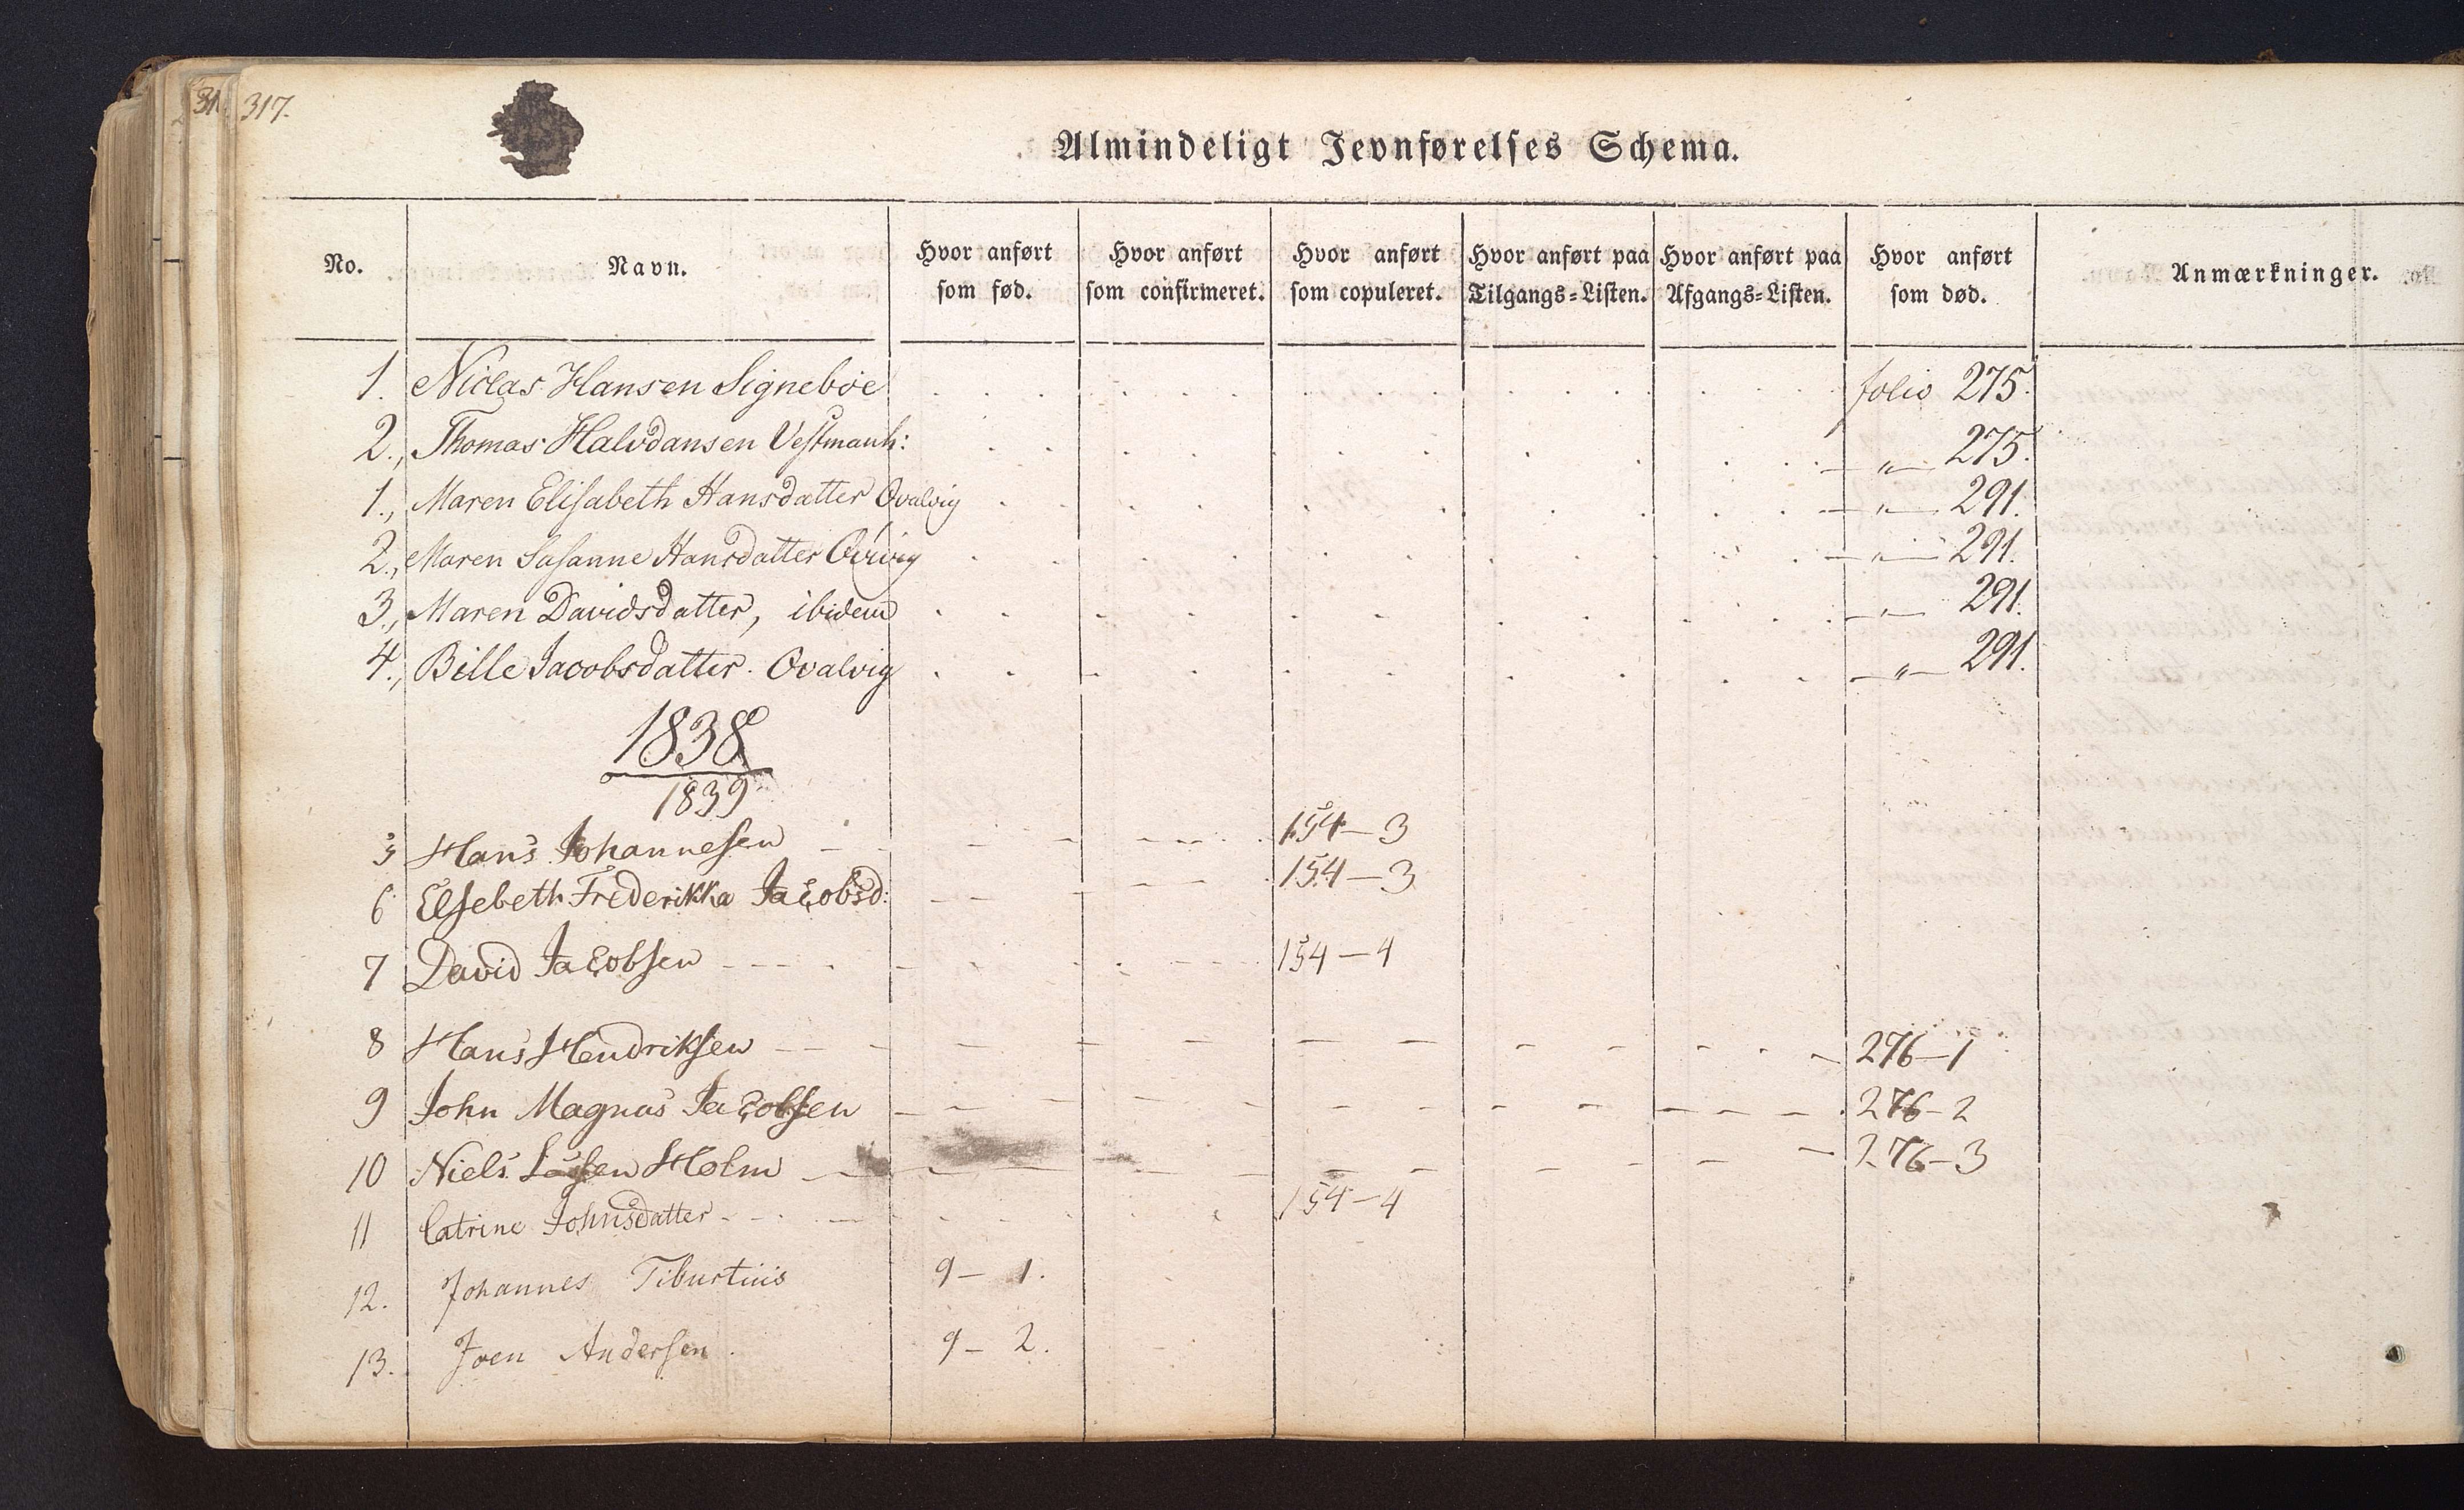 317.
Almindeligt Jevnførelses Schema.
No. Navn. Hvor anført som fød. Hvor anført som confirmeret. Hvor anført som copuleret. Hvor anført paa Tilgangs=Listen. Hvor anført paa Afgangs=Listen. Hvor anført som død. Anmærkninger.
1. Niclas Hansen Signeböe folio 275.
2., Thomas Halvdansen Vestmanh: — „ — 275.
1., Maren Elisabeth Hansdatter Qvalvig — „ — 291.
2., Maren Susanne Hansdatter — „ — 291.
3., Maren Davidsdatter, ibidem — „ — 291.
4., Bille Jacobsdatter. Qvalvig — „ — 291.
1838
1839
5 Hans Johannesen 154—3
6 Elsebeth Frederikka Jacobsd: 154—3
7 David Jacobsen 154—4
8 Hans Hendriksen 276—1
9 John Magnus Jacobsen 276—2
10 Niels Holm 276—3
11 Catrine Johnsdatter 154—4
12. Johannes Tiburtius 9— 1.
13. Joen Andersen. 9— 2.